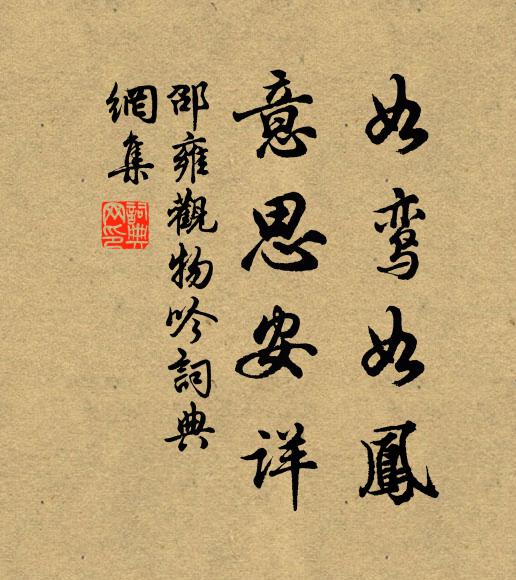 如鸾如鳳
意思安详
邵雍觀物吟詞典
網集
詞典
网印